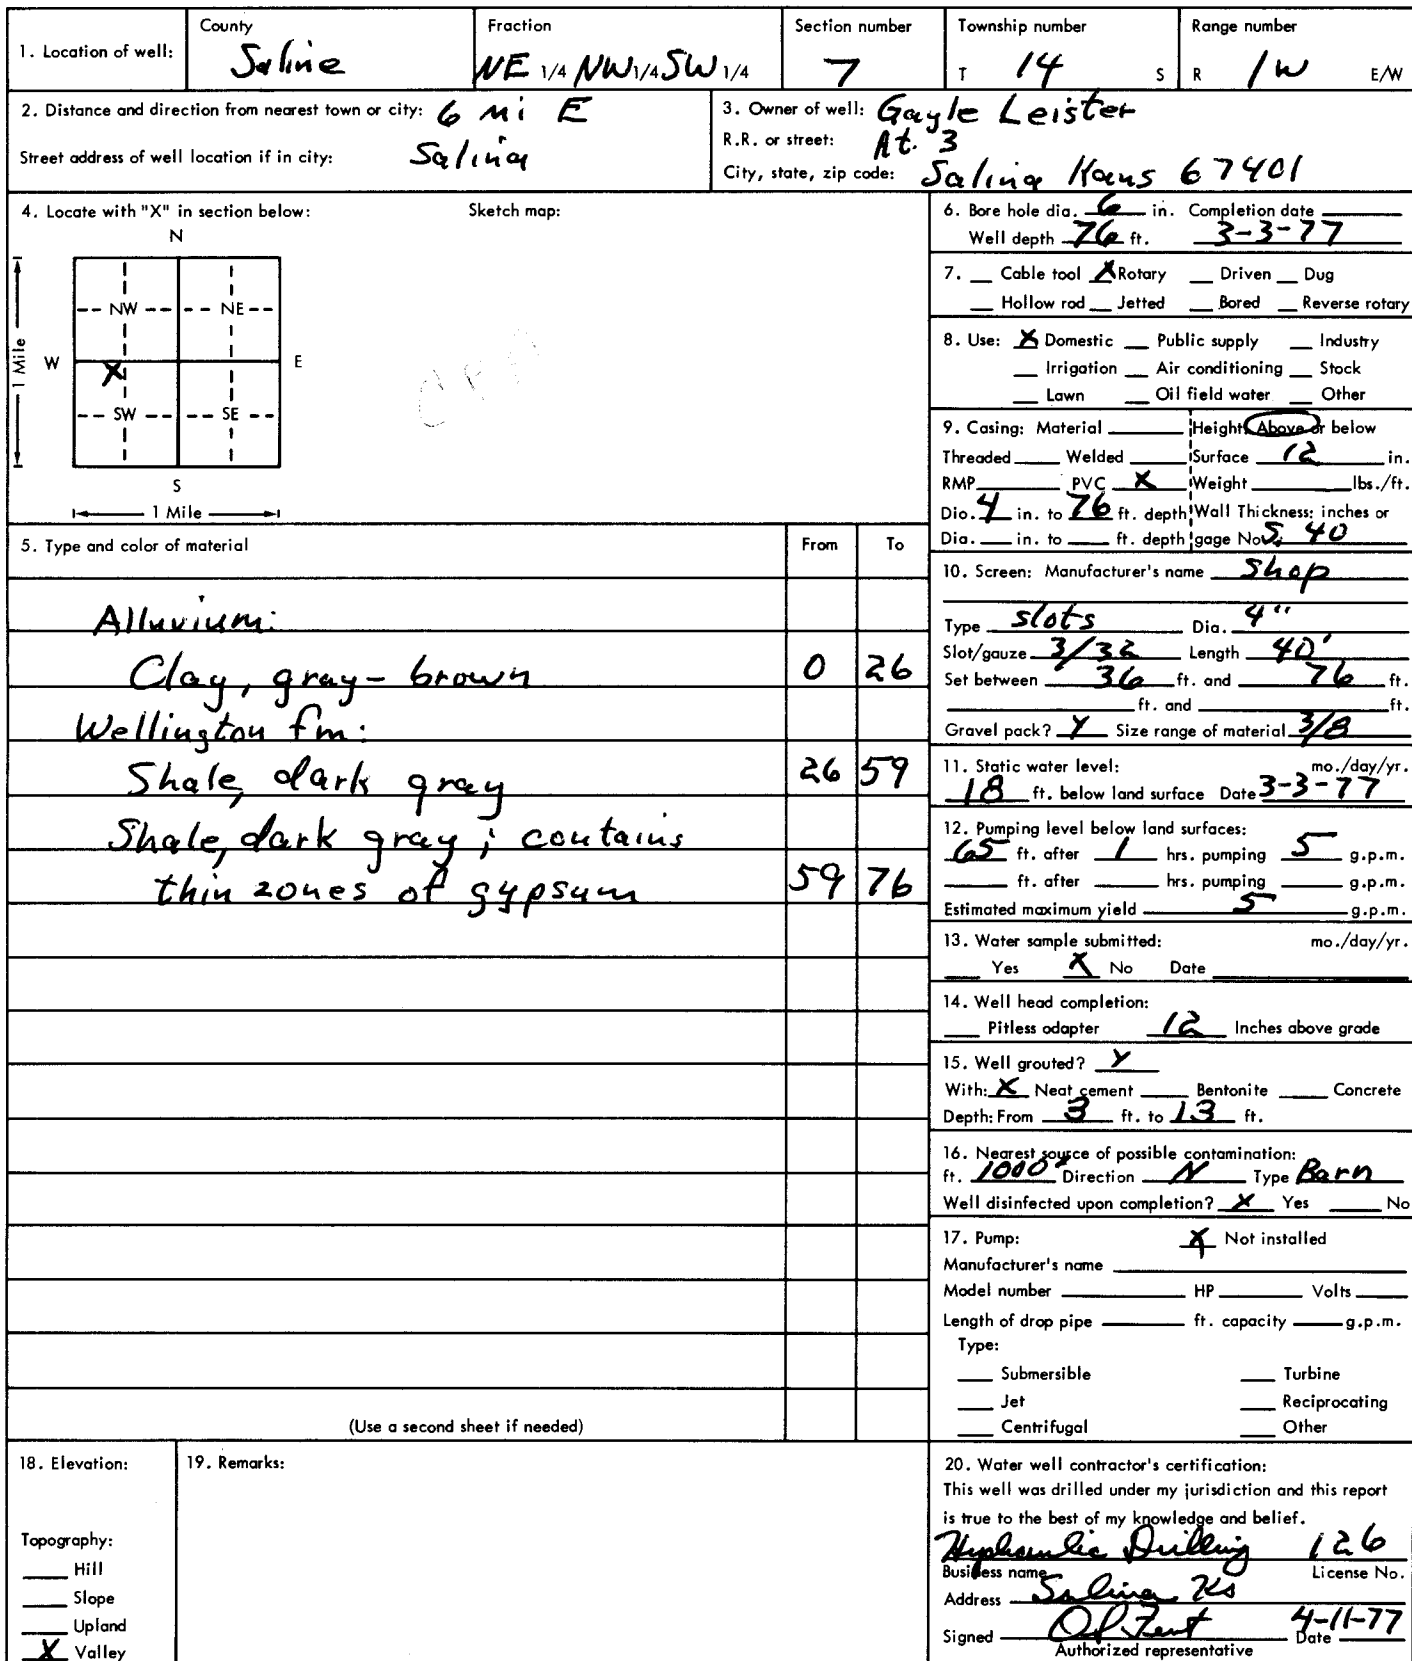 1. Location of well: County Saline Fraction NE 1/4 NW 1/4 SW 1/4 Section number 7 Township number T 14 S Range number R 1W E/W
2. Distance and direction from nearest town or city: 6 mi E Salina
Street address of well location if in city:
3. Owner of well: Gayle Leister
R.R. or street: Rt. 3
City, state, zip code: Salina Kans 67401
4. Locate with "X" in section below: Sketch map:
N
NW NE
W X E
SW SE
S
1 Mile
1 Mile
5. Type and color of material From To
Alluvium:
Clay, gray-brown 0 26
Wellington fm:
Shale, dark gray 26 59
Shale, dark gray; contains
thin zones of gypsum 59 76
(Use a second sheet if needed)
6. Bore hole dia. 6 in. Completion date
Well depth 76 ft. 3-3-77
7. __ Cable tool X Rotary __ Driven __ Dug
__ Hollow rod __ Jetted __ Bored __ Reverse rotary
8. Use: X Domestic __ Public supply __ Industry
__ Irrigation __ Air conditioning __ Stock
__ Lawn __ Oil field water __ Other
9. Casing: Material ____ Height: Above or below
Threaded ____ Welded ____ Surface 12 in.
RMP ____ PVC X Weight ____ lbs./ft.
Dia. 4 in. to 76 ft. depth Wall Thickness: inches or
Dia. __ in. to __ ft. depth gage No. S. 40
10. Screen: Manufacturer's name Shop
Type slots Dia. 4"
Slot/gauze 3/32 Length 40'
Set between 36 ft. and 76 ft.
____ ft. and ____ ft.
Gravel pack? Y Size range of material 3/8
11. Static water level: mo./day/yr.
18 ft. below land surface Date 3-3-77
12. Pumping level below land surfaces:
65 ft. after 1 hrs. pumping 5 g.p.m.
____ ft. after ____ hrs. pumping ____ g.p.m.
Estimated maximum yield 5 g.p.m.
13. Water sample submitted: mo./day/yr.
__ Yes X No Date ____
14. Well head completion:
__ Pitless adapter 12 Inches above grade
15. Well grouted? Y
With: X Neat cement __ Bentonite __ Concrete
Depth: From 3 ft. to 13 ft.
16. Nearest source of possible contamination:
ft. 1000+ Direction N Type Barn
Well disinfected upon completion? X Yes __ No
17. Pump: X Not installed
Manufacturer's name ____
Model number ____ HP ____ Volts ____
Length of drop pipe ____ ft. capacity ____ g.p.m.
Type:
__ Submersible __ Turbine
__ Jet __ Reciprocating
__ Centrifugal __ Other
18. Elevation:
Topography:
__ Hill
__ Slope
__ Upland
X Valley
19. Remarks:
20. Water well contractor's certification:
This well was drilled under my jurisdiction and this report
is true to the best of my knowledge and belief.
Hydraulic Drilling 126
Business name License No.
Address Salina Ks
Signed Fent Date 4-11-77
Authorized representative